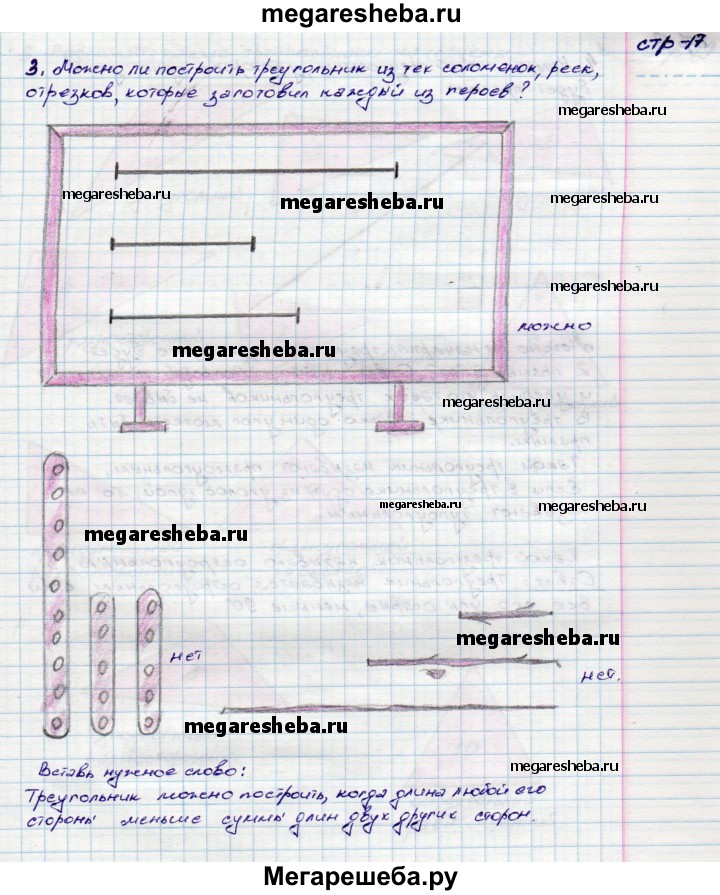 megaresheba.ru
стр-17
3. Можно ли построить треугольник из тех соломенок, реек,
отрезков, которые заготовил каждый из героев?
megaresheba.ru
megaresheba.ru
megaresheba.ru
megaresheba.ru
megaresheba.ru
можно
megaresheba.ru
megaresheba.ru
megaresheba.ru
megaresheba.ru
megaresheba.ru
megaresheba.ru
нет
нет.
megaresheba.ru
megaresheba.ru
Вставь нужное слово:
Треугольник можно построить, когда длина любой его
стороны меньше суммы длин двух других сторон.
Мегарешеба.ру